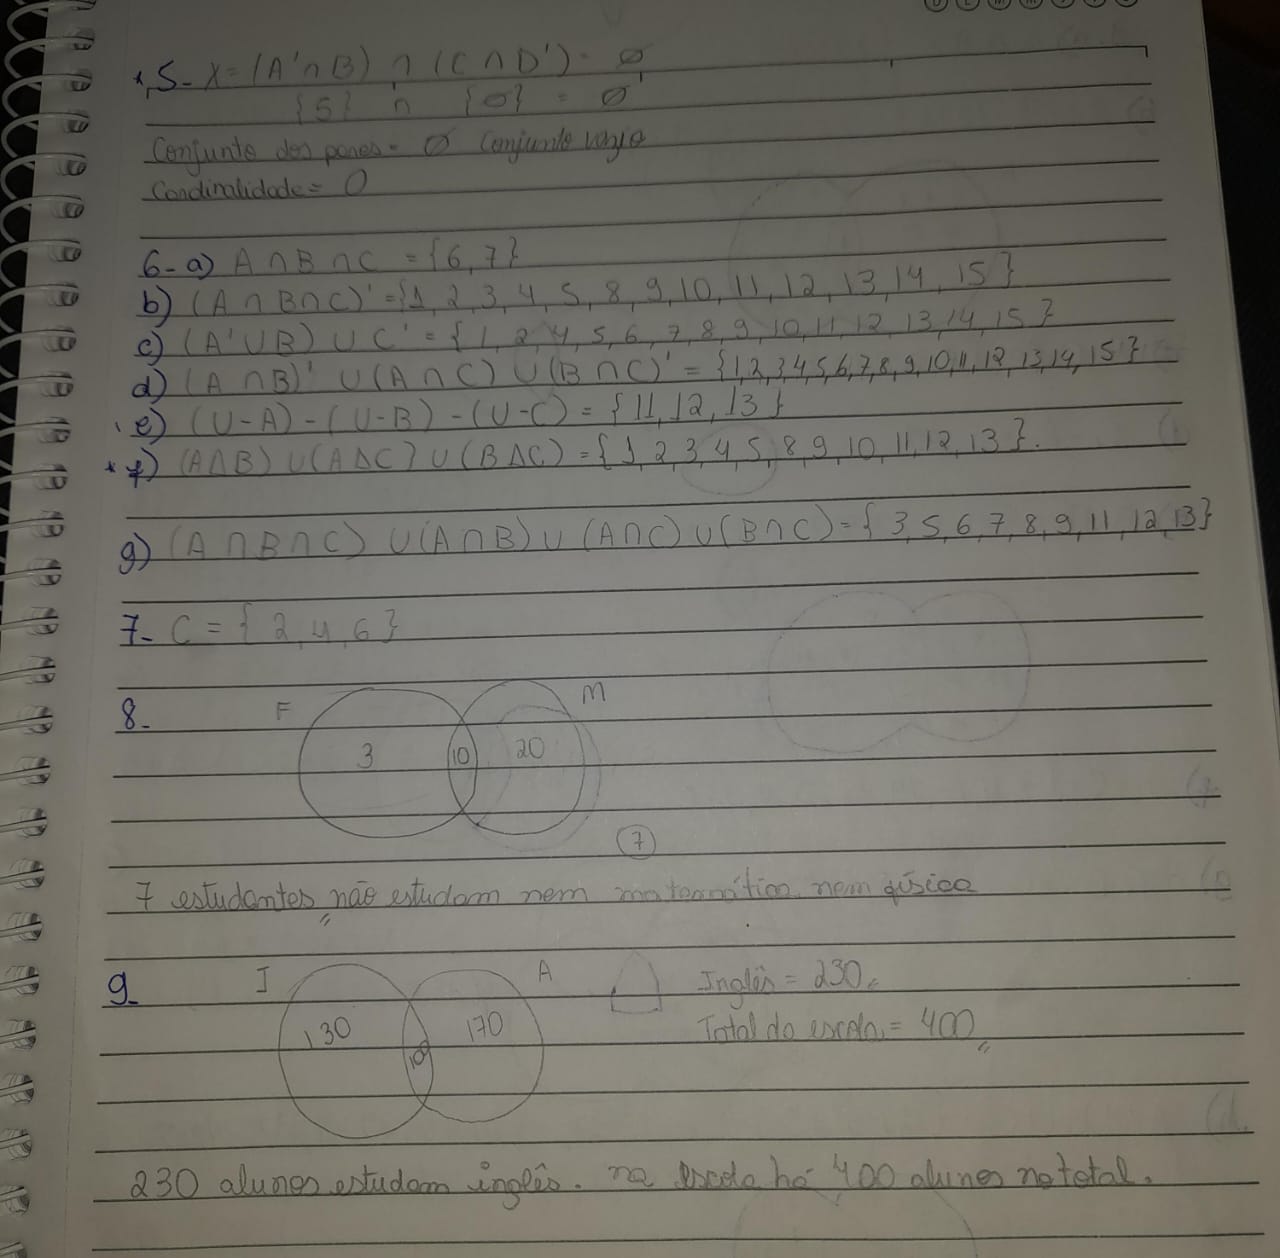 5- X = (A'∩B) ∩ (C∩D') = ∅
{5} ∩ {∅} = ∅
Conjunto dos pares = ∅ Conjunto vazio
Cardinalidade = 0
6- a) A∩B∩C = {6, 7}
b) (A∩B∩C)' = {1, 2, 3, 4, 5, 8, 9, 10, 11, 12, 13, 14, 15}
c) (A'∪B) ∪ C' = {1, 2, 4, 5, 6, 7, 8, 9, 10, 11, 12, 13, 14, 15}
d) (A∩B)' ∪ (A∩C) ∪ (B∩C)' = {1,2,3,4,5,6,7,8,9,10,11,12,13,14,15}
e) (U-A) - (U-B) - (U-C) = {11, 12, 13}
* f) (AΔB) ∪ (AΔC) ∪ (BΔC) = {1, 2, 3, 4, 5, 8, 9, 10, 11, 12, 13}.
g) (A∩B∩C) ∪ (A∩B) ∪ (A∩C) ∪ (B∩C) = {3, 5, 6, 7, 8, 9, 11, 12, 13}
7- C = {2, 4, 6}
8- F M
3 10 20
7
7 estudantes não estudam nem matemática nem física
9- I A Inglês = 230
130 100 170 Total da escola = 400
230 alunos estudam inglês. na escola há 400 alunos no total.